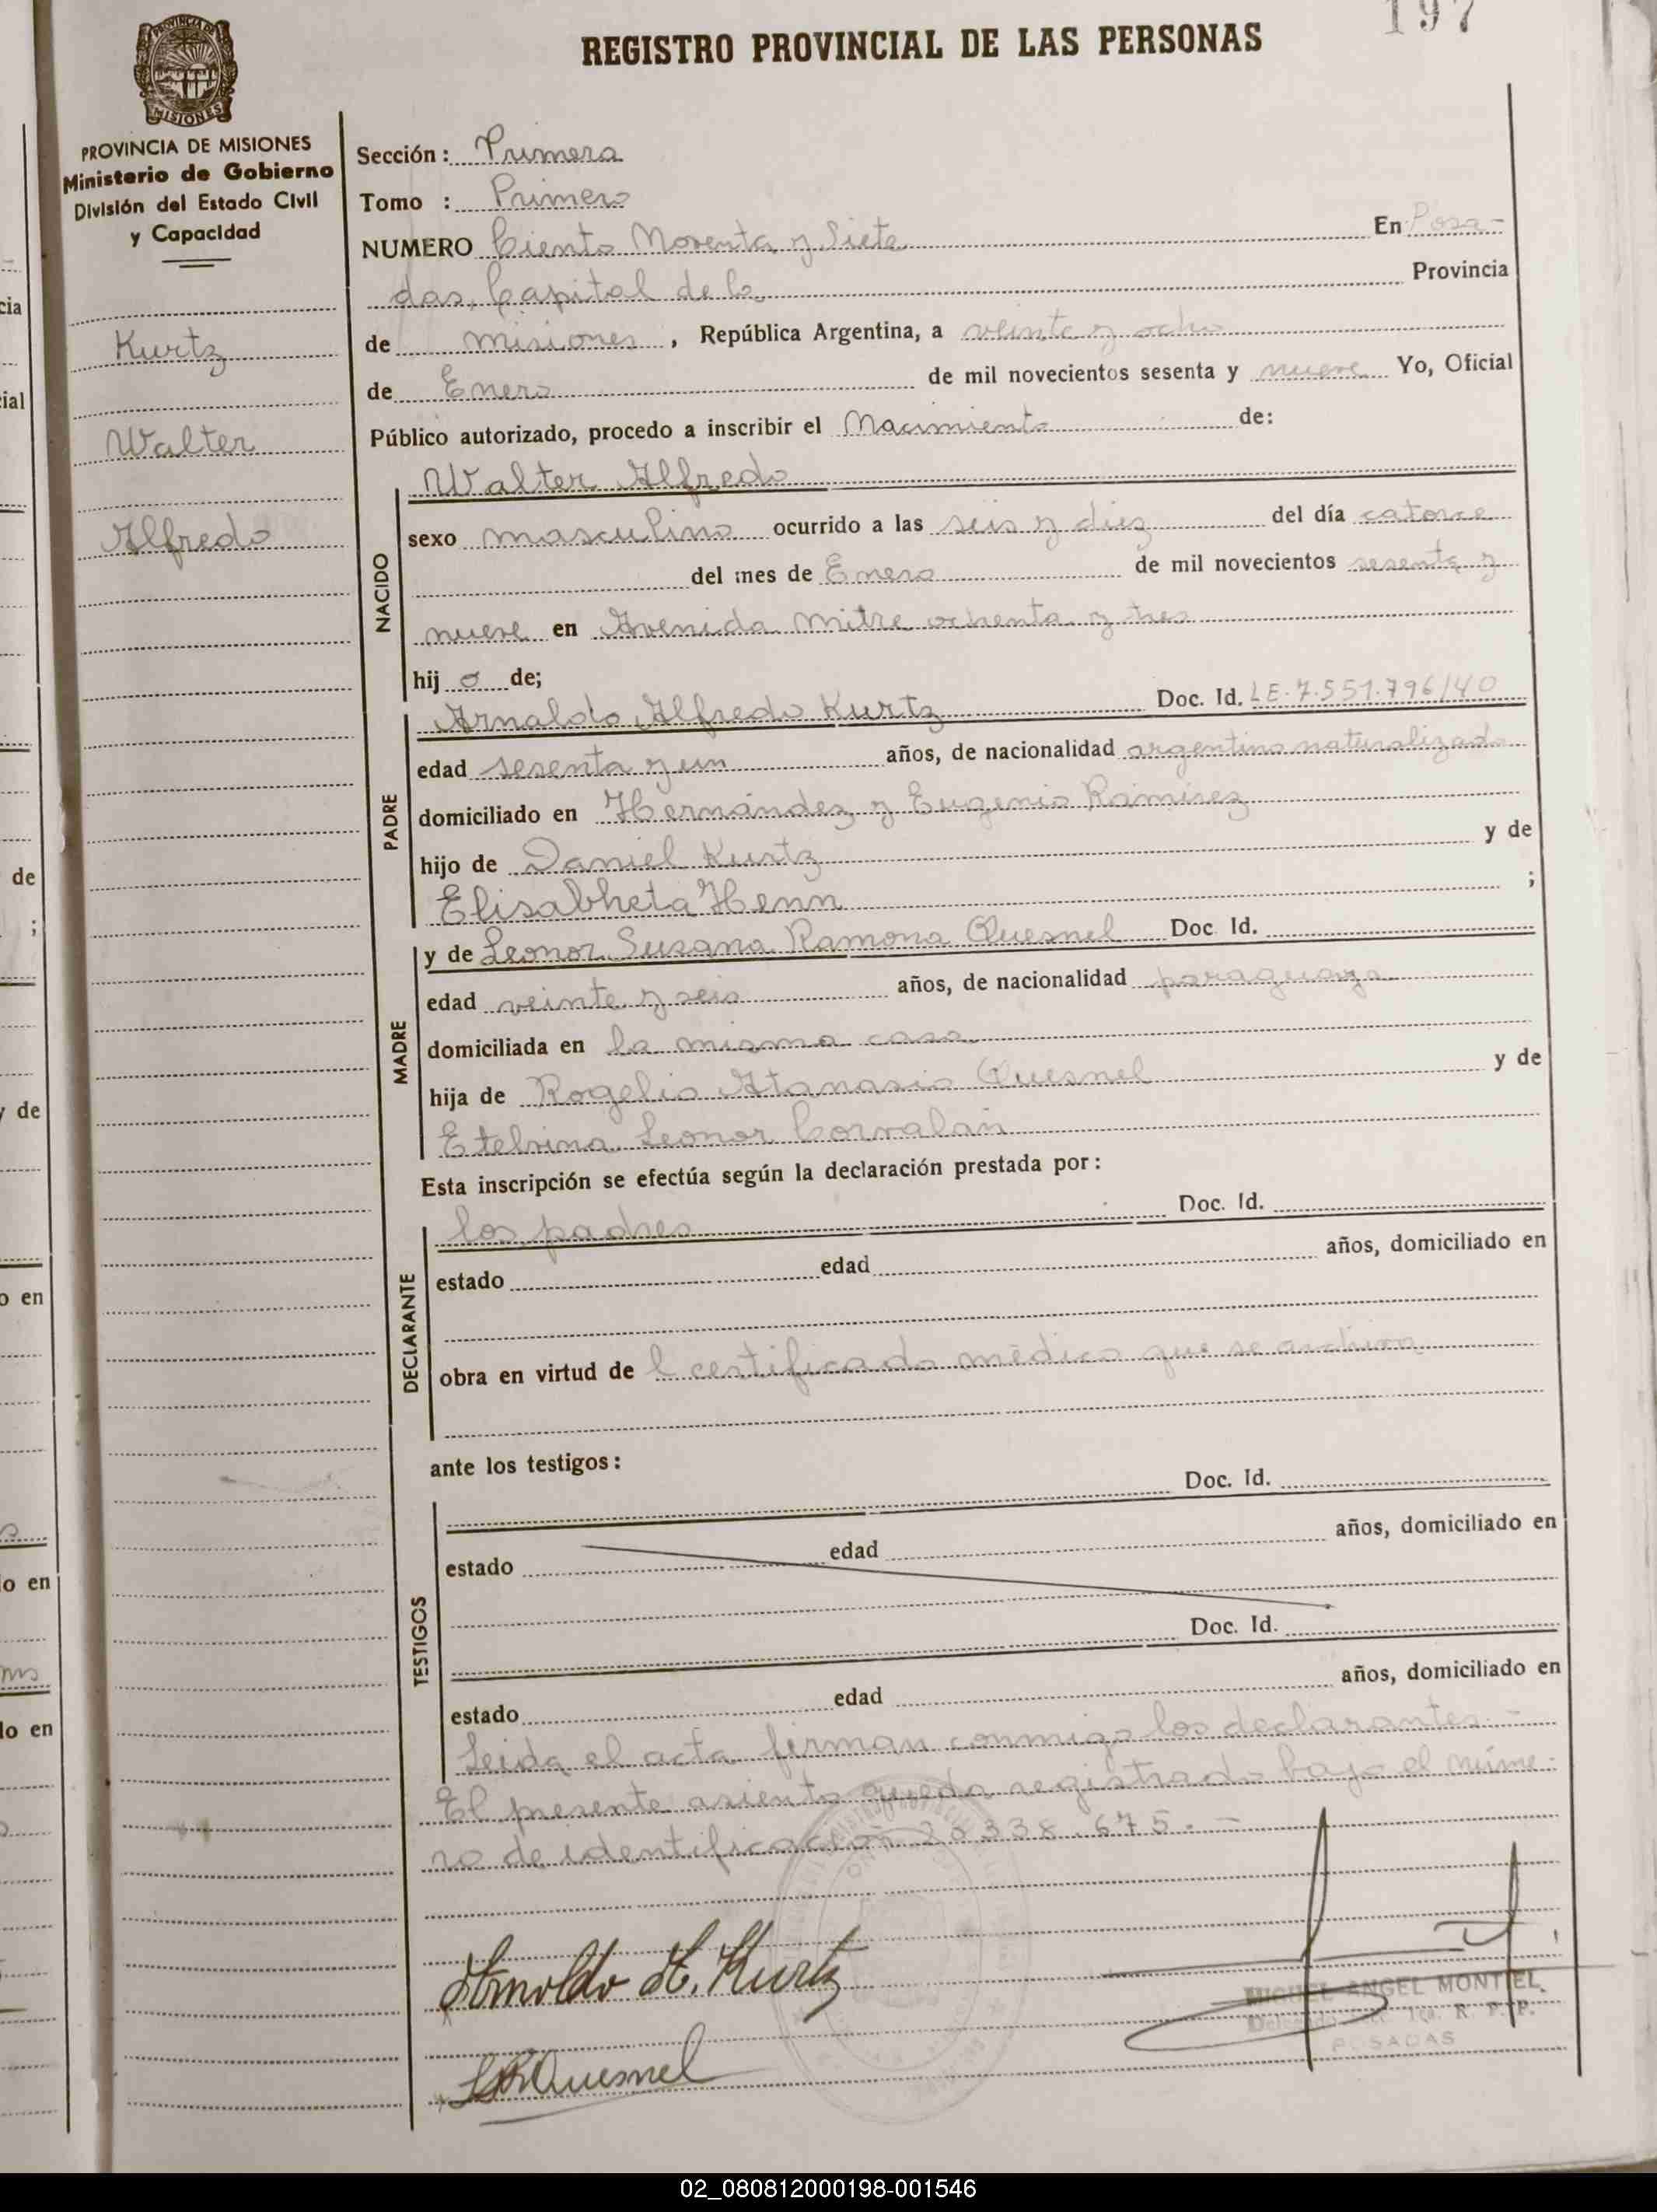 197
REGISTRO PROVINCIAL DE LAS PERSONAS
PROVINCIA DE MISIONES
PROVINCIA DE MISIONES
Ministerio de Gobierno
División del Estado Civil
y Capacidad
Kurtz
Walter
Alfredo
Sección: Primera
Tomo : Primero
NUMERO Ciento Noventa y Siete En Posa-
das, Capital de la Provincia
de misiones, República Argentina, a veinte y ocho
de Enero de mil novecientos sesenta y nueve Yo, Oficial
Público autorizado, procedo a inscribir el Nacimiento de:
NACIDO
Walter Alfredo
sexo masculino ocurrido a las seis y diez del día catorce
del mes de Enero de mil novecientos sesenta y
nueve en Avenida Mitre ochenta y tres
hij o de;
PADRE
Arnaldo Alfredo Kurtz Doc. Id. LE.7.551.796/40
edad sesenta y un años, de nacionalidad argentino naturalizado
domiciliado en Hernández y Eugenio Ramirez
hijo de Daniel Kurtz y de
Elisabheta Henn ;
MADRE
y de Leonor Susana Ramona Quesnel Doc. Id.
edad veinte y seis años, de nacionalidad paraguaya
domiciliada en la misma casa
hija de Rogelio Atanasio Quesnel y de
Etelvina Leonor Corvalán
Esta inscripción se efectúa según la declaración prestada por:
DECLARANTE
los padres Doc. Id.
estado edad años, domiciliado en
obra en virtud de l certificado médico que se archiva
ante los testigos:
TESTIGOS
Doc. Id.
estado edad años, domiciliado en
Doc. Id.
estado edad años, domiciliado en
Leida el acta firman conmigo los declarantes.-
El presente asiento queda registrado bajo el núme-
ro de identificación 20.338.675.-
Arnoldo A. Kurtz
LSRQuesnel
MIGUEL ANGEL MONTIEL
Delegado Sec. 1ra. R. P. P.
POSADAS
02_080812000198-001546